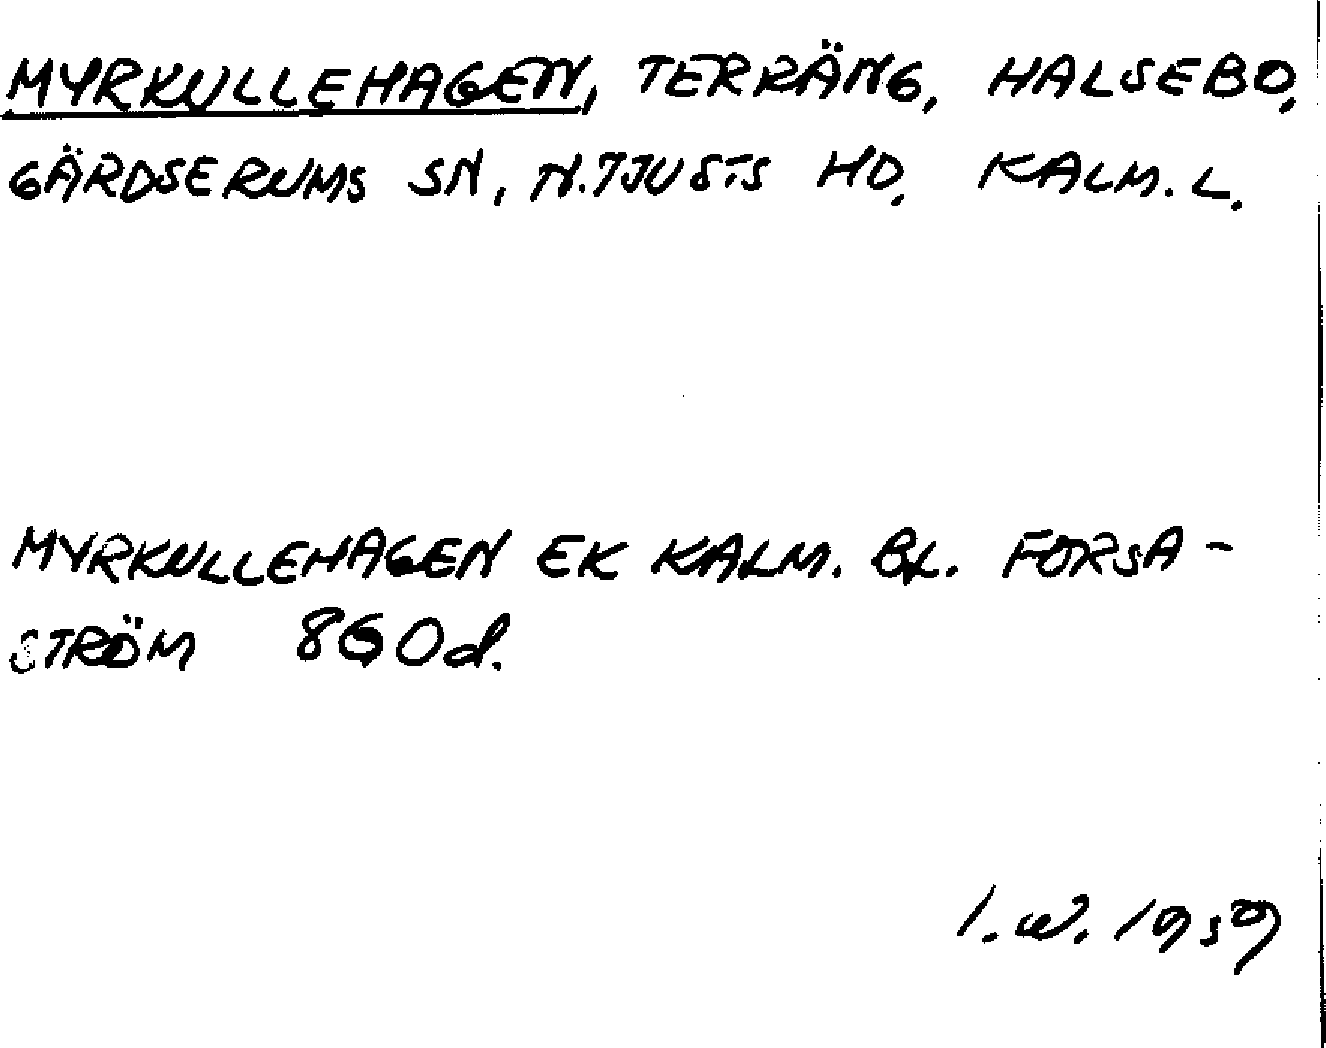 MYRKULLEHAGEN, TERRÄNG, HALSEBO,
GÄRDSERUMS SN, N. TJUSTS HD, KALM. L.
MYRKULLEHAGEN EK KALM. BL. FORSA-
STRÖM 860d.
I.W. 1959